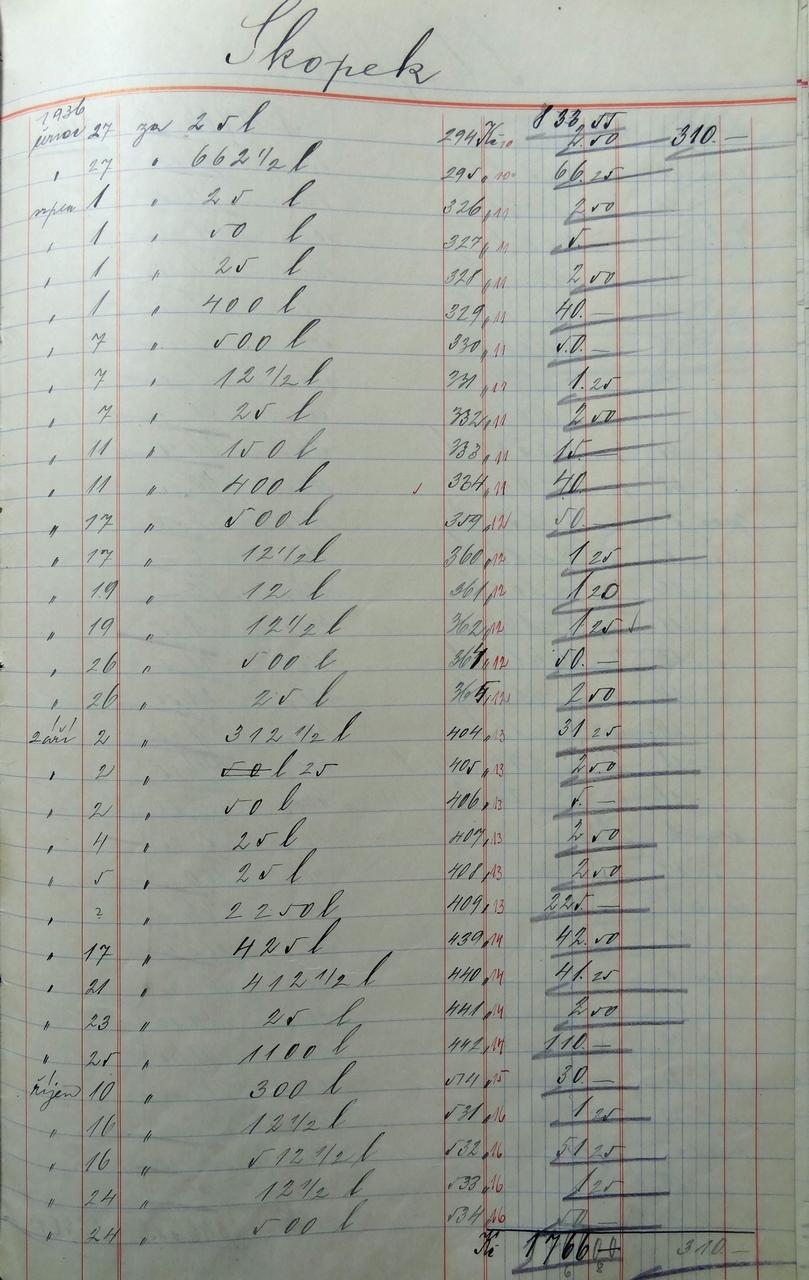 Skopek
1936
833 55
27 za 25 l 294 Kč 10 2.50 310.—
„ 27 „ 662 1/2 l 295 „ 10 66.25
srpen 1 „ 25 l 326 „ 11 2 50
„ 1 „ 50 l 327 „ 11 5.—
„ 1 „ 25 l 328 „ 11 2 50
„ 1 „ 400 l 329 „ 11 40.—
„ 7 „ 500 l 330 „ 11 50.—
„ 7 „ 12 1/2 l 331 „ 11 1.25
„ 7 „ 25 l 332 „ 11 2 50
„ 11 „ 150 l 333 „ 11 15.—
„ 11 „ 400 l 334 „ 11 40.—
„ 17 „ 500 l 359 „ 12 50.—
„ 17 „ 12 1/2 l 360 „ 12 1 25
„ 19 „ 12 l 361 „ 12 1 20
„ 19 „ 12 1/2 l 362 „ 12 1 25
„ 26 „ 500 l 364 „ 12 50.—
„ 26 „ 25 l 365 „ 12 2 50
září 2 „ 312 1/2 l 404 „ 13 31 25
„ 2 „ 50 l 25 405 „ 13 2 50
„ 2 „ 50 l 406 „ 13 5.—
„ 4 „ 25 l 407 „ 13 2 50
„ 5 „ 25 l 408 „ 13 2 50
„ ? „ 2250 l 409 „ 13 225 —
„ 17 „ 425 l 439 „ 14 42.50
„ 21 „ 412 1/2 l 440 „ 14 41.25
„ 23 „ 25 l 441 „ 14 2 50
„ 25 „ 1100 l 442 „ 14 110.—
říjen 10 „ 300 l 514 „ 15 30.—
„ 16 „ 12 1/2 l 531 „ 16 1 25
„ 16 „ 512 1/2 l 532 „ 16 51 25
„ 24 „ 12 1/2 l 533 „ 16 1 25
„ 24 „ 500 l 534 „ 16 50 —
Kč 1766 310.—
6 8